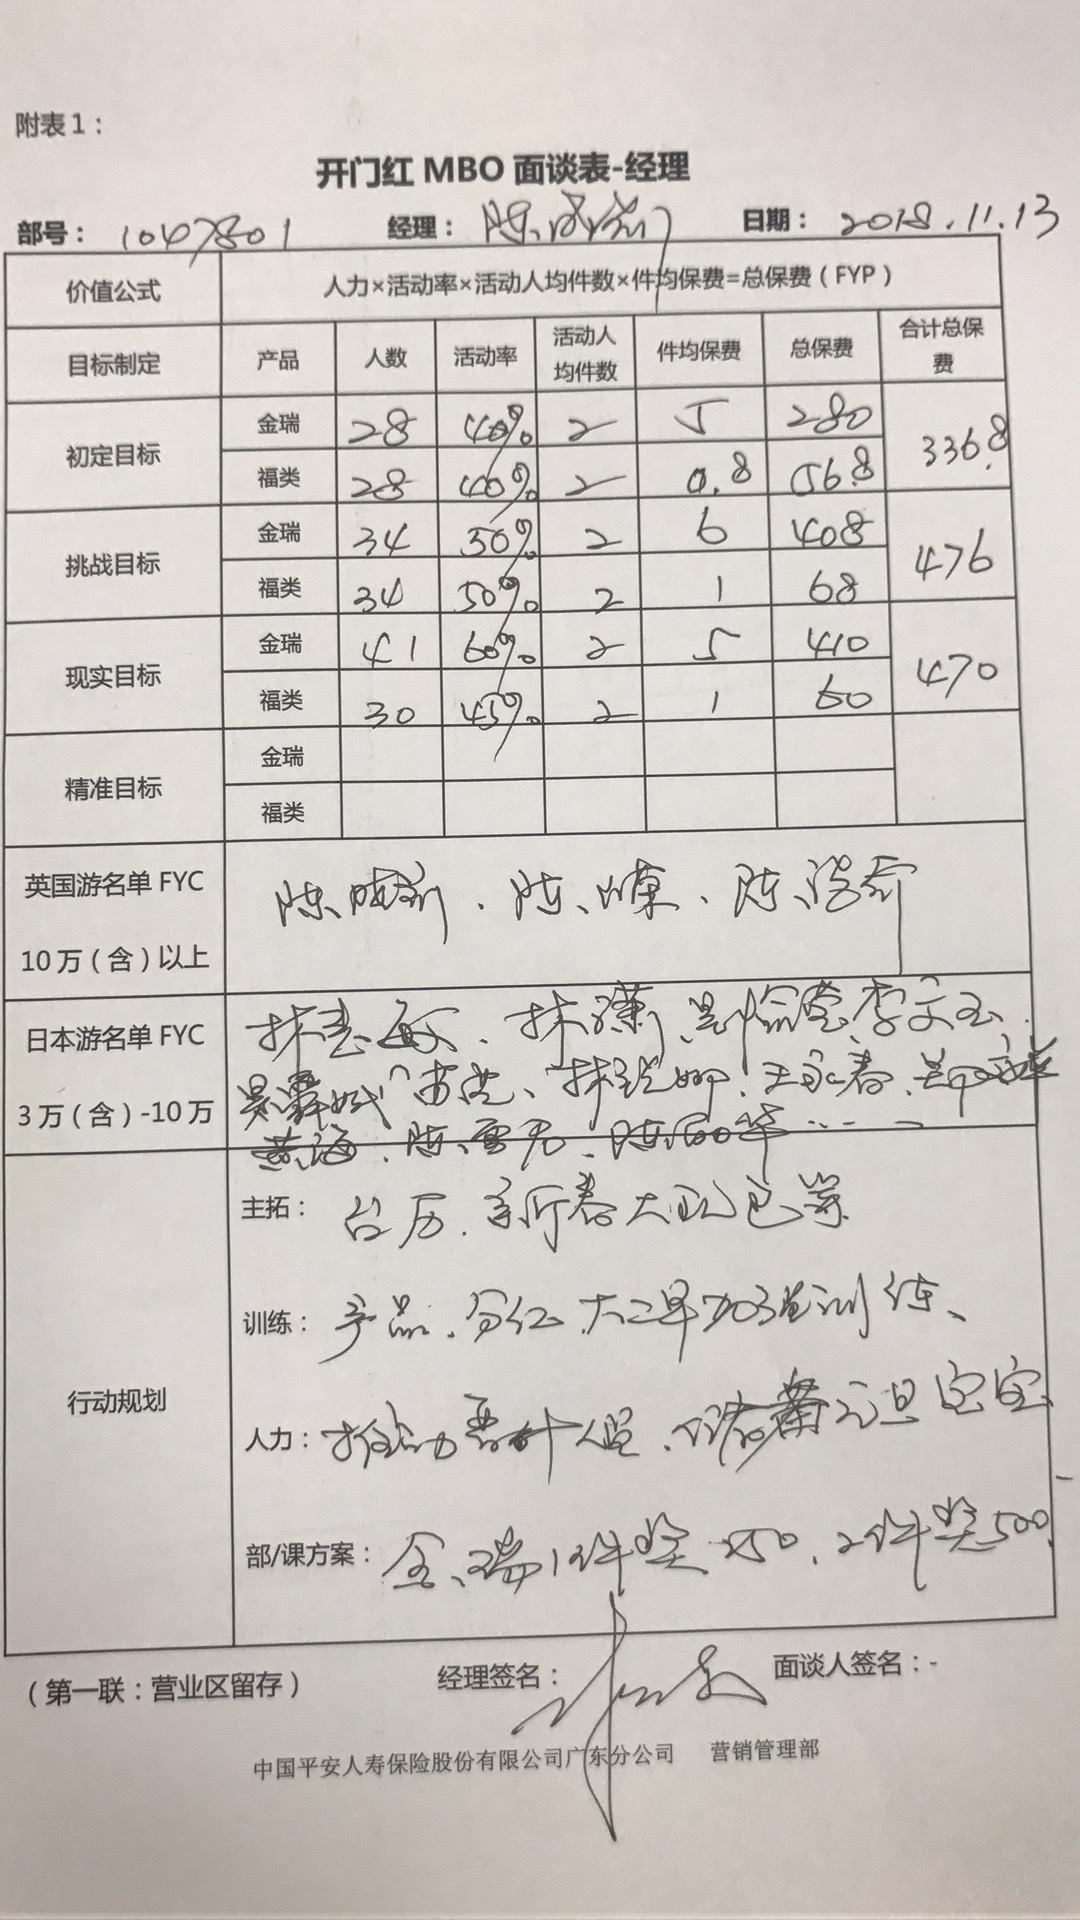 附表1：
开门红 MBO 面谈表-经理
部号： 1047801 经理： 陈 日期： 2018.11.13
价值公式 人力×活动率×活动人均件数×件均保费=总保费（FYP）
目标制定 产品 人数 活动率 活动人均件数 件均保费 总保费 合计总保费
初定目标 金瑞 28 40% 2 5 280 336.8
福类 28 40% 2 0.8 56.8
挑战目标 金瑞 34 50% 2 6 408 476
福类 34 50% 2 1 68
现实目标 金瑞 41 60% 2 5 410 470
福类 30 45% 2 1 60
精准目标 金瑞
福类
英国游名单 FYC
10万（含）以上
陈 、陈 、陈
日本游名单 FYC
3万（含）-10万
林 、林 李文玉
王永春
黄海、陈雪 、陈丽华……
行动规划
主拓： 台历、新春大礼包等
训练： 产品、分红、大二早 训练、
人力： 推动晋升 元旦宝宝
部/课方案： 金瑞1件奖250、2件奖500
（第一联：营业区留存） 经理签名： 面谈人签名：-
中国平安人寿保险股份有限公司广东分公司 营销管理部